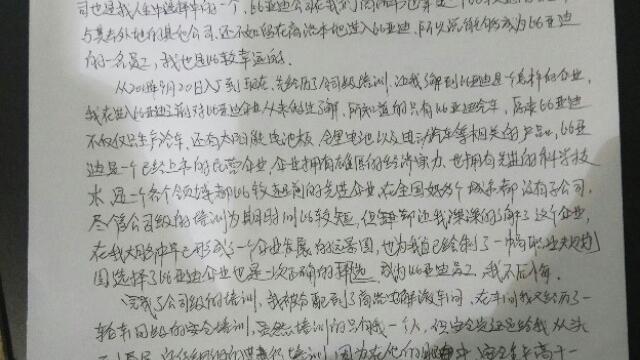 司也是我人生中选择中的一个,比亚迪公司在我们商洛
与其去外地的其他公司,还不如留在商洛本地进入比亚迪,所以说能够成为比亚迪
的一名员工,我也是比较幸运的。
从2018年9月20日入厂到现在,先经历了公司级培训,让我了解到比亚迪是个怎样的企业,
我在进入比亚迪之前对比亚迪企业从未的过了解,所知道的只有比亚迪汽车,原来比亚迪
不仅仅只生产汽车,还有太阳能电池板,锂电池以及电动汽车等相关的产品,比亚
迪是一个已经上市的民营企业,企业拥有雄厚的经济实力,也拥有先进的科学技
术,是一个各个领域都比较超前的先进企业,在全国好多个城市都设有子公司。
尽管公司级的培训为期时间比较短,但却让我深深的了解了这个企业,
在我大脑中早已形成了一个企业发展的远景图,也为我自己绘制了一幅职业规划
图选择了比亚迪企业也是一次正确的,成为比亚迪员工,我不后悔。
完成了公司级的培训,我被分配到了商洛电解液车间,在车间我又经历了一
轮车间级的安全培训,虽然培训的只有我一个人,但安全员还是给我从头
培训,因为在他们眼中,安全生产高于一